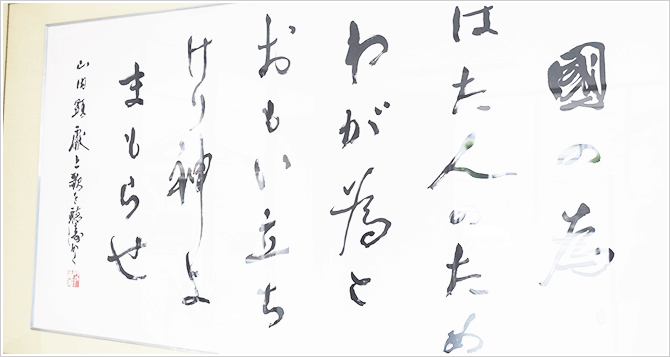 國の為
はた人のため
わが為と
おもい立ち
けり神よ
まもらせ
山田顕義上歌を